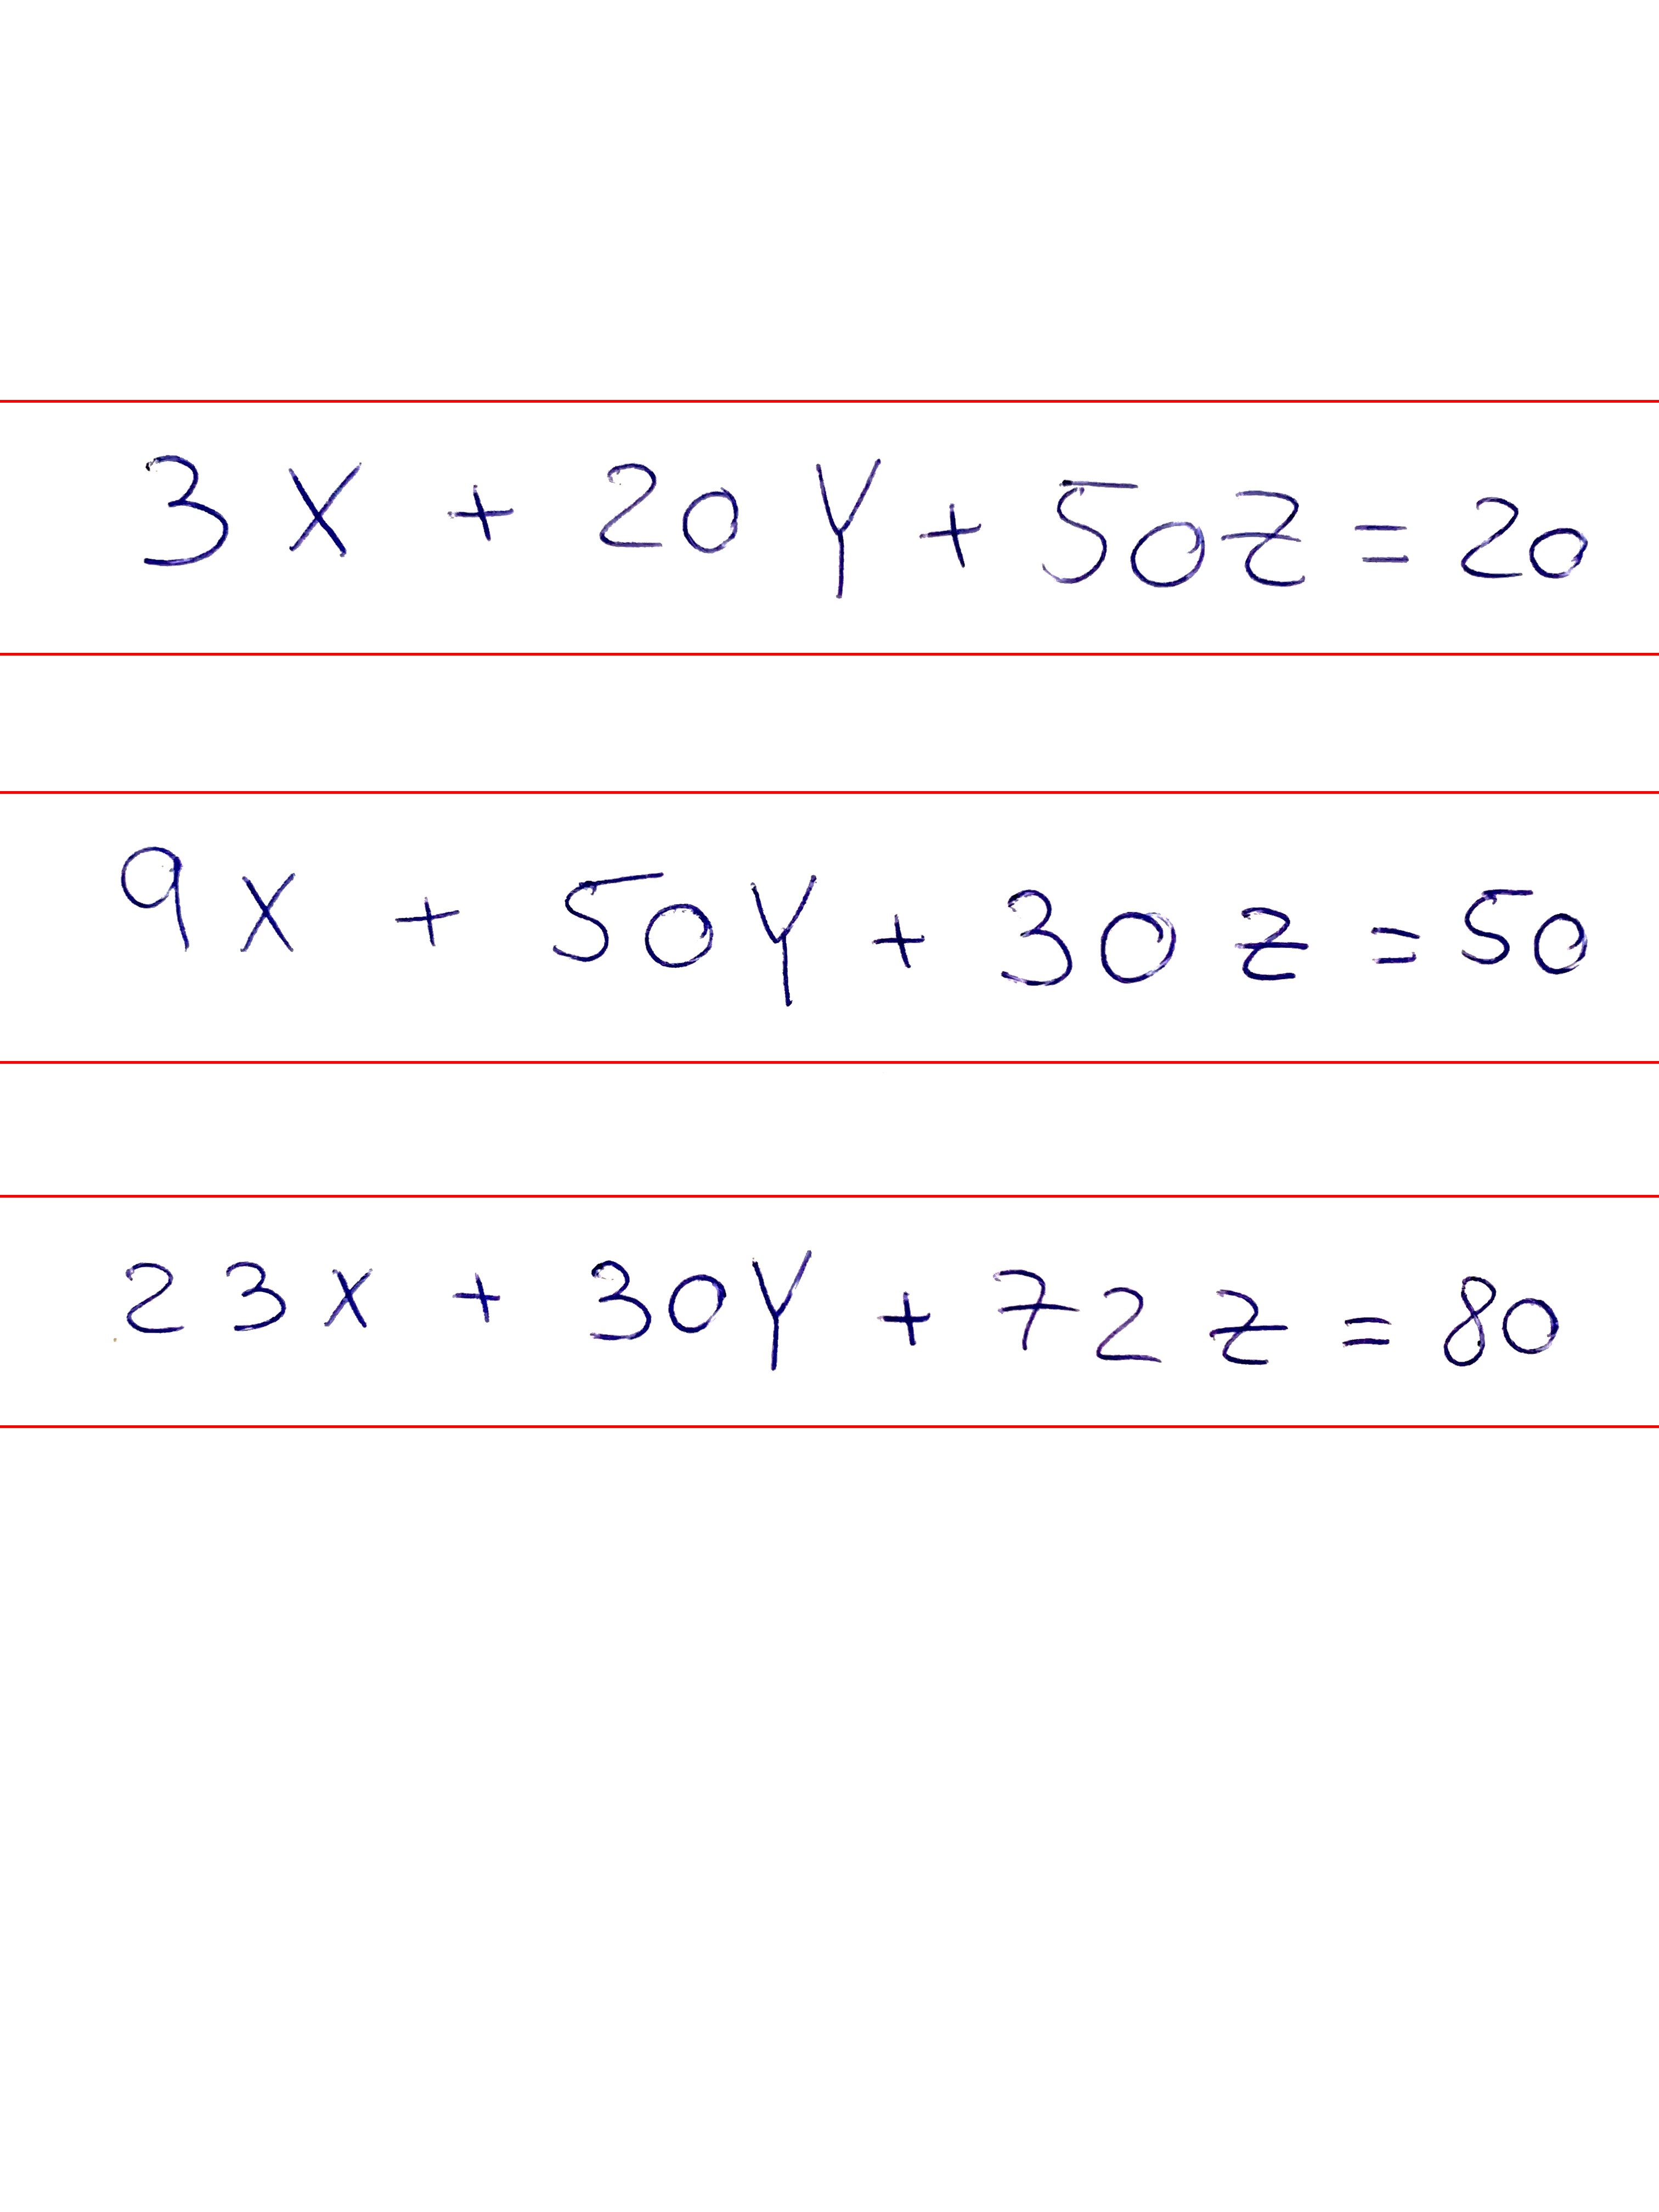 3X + 20Y + 50Z = 20
9X + 50Y + 30Z = 50
23X + 30Y + 72Z = 80